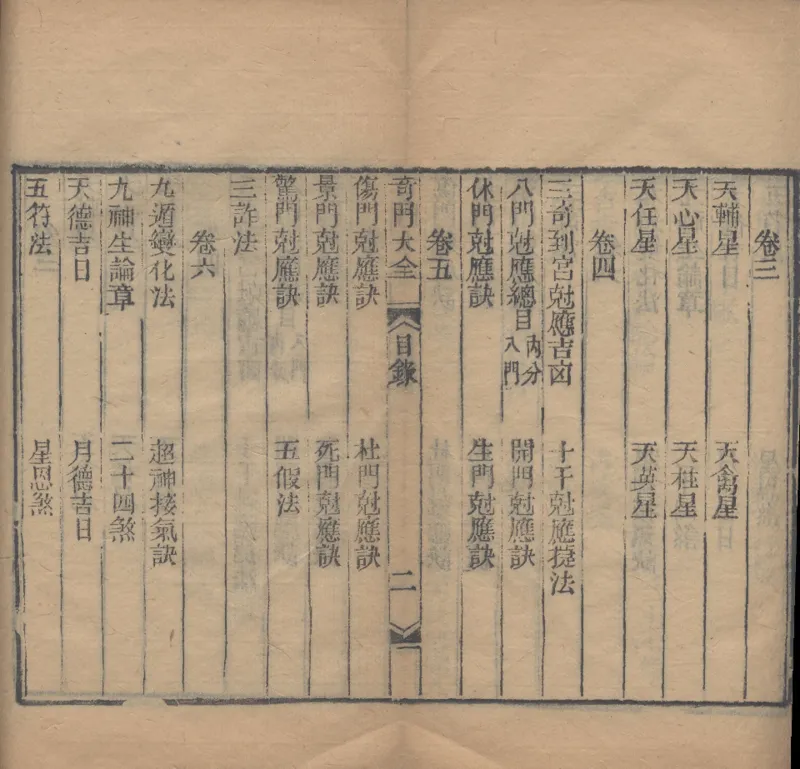 卷三
天輔星 天禽星
天心星 天柱星
天任星 天英星
卷四
三奇到宮尅應吉凶 十干尅應㨗法
八門尅應總目 內分八門 開門尅應訣
休門尅應訣 生門尅應訣
卷五
奇門大全 目錄 二
傷門尅應訣 杜門尅應訣
景門尅應訣 死門尅應訣
驚門尅應訣 五假法
三詐法
卷六
九遁變化法 超神接氣訣
九神生論章 二十四煞
天德吉日 月德吉日
五符法 星恩煞